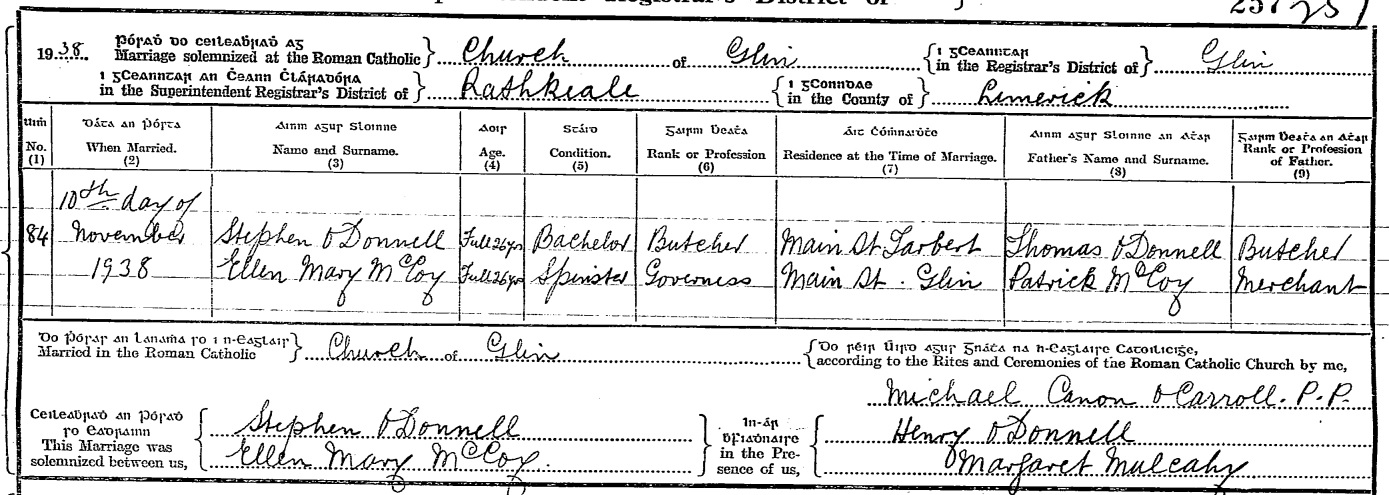 Registrar's District of
1938. Pórad do ceileabrad ag
Marriage solemnized at the Roman Catholic } Church of Glin { i gCeanntar
in the Registrar's District of } Glin
i gCeanntar an Ceann Cláradóra
in the Superintendent Registrar's District of } Rathkeale { i gConndae
in the County of } Limerick
uim No. (1) | Dáta an Pórta When Married. (2) | Ainm agus Sloinne Name and Surname. (3) | Aois Age. (4) | Stáid Condition. (5) | Gairm Beata Rank or Profession (6) | Áit Cómnuidte Residence at the Time of Marriage. (7) | Ainm agus Sloinne an Atar Father's Name and Surname. (8) | Gairm Beata an Atar Rank or Profession of Father. (9)
10th day of
84 November Stephen O Donnell Full 26 yrs Bachelor Butcher Main St Tarbert Thomas O Donnell Butcher
1938 Ellen Mary McCoy Full 26 yrs Spinster Governess Main St. Glin Patrick McCoy Merchant
Do pórad an lanama so i n-Eaglais
Married in the Roman Catholic } Church of Glin
{ Do réir Uird agus Gnáta na h-Eaglaise Catoilicige,
according to the Rites and Ceremonies of the Roman Catholic Church by me,
Michael Canon O Carroll. P.P.
Ceileabrad an Pórad
so Eadrainn
This Marriage was
solemnized between us, { Stephen O Donnell
Ellen Mary McCoy. }
In-ár
bFiadnaire
in the Pre-
sence of us, { Henry O Donnell
Margaret Mulcahy